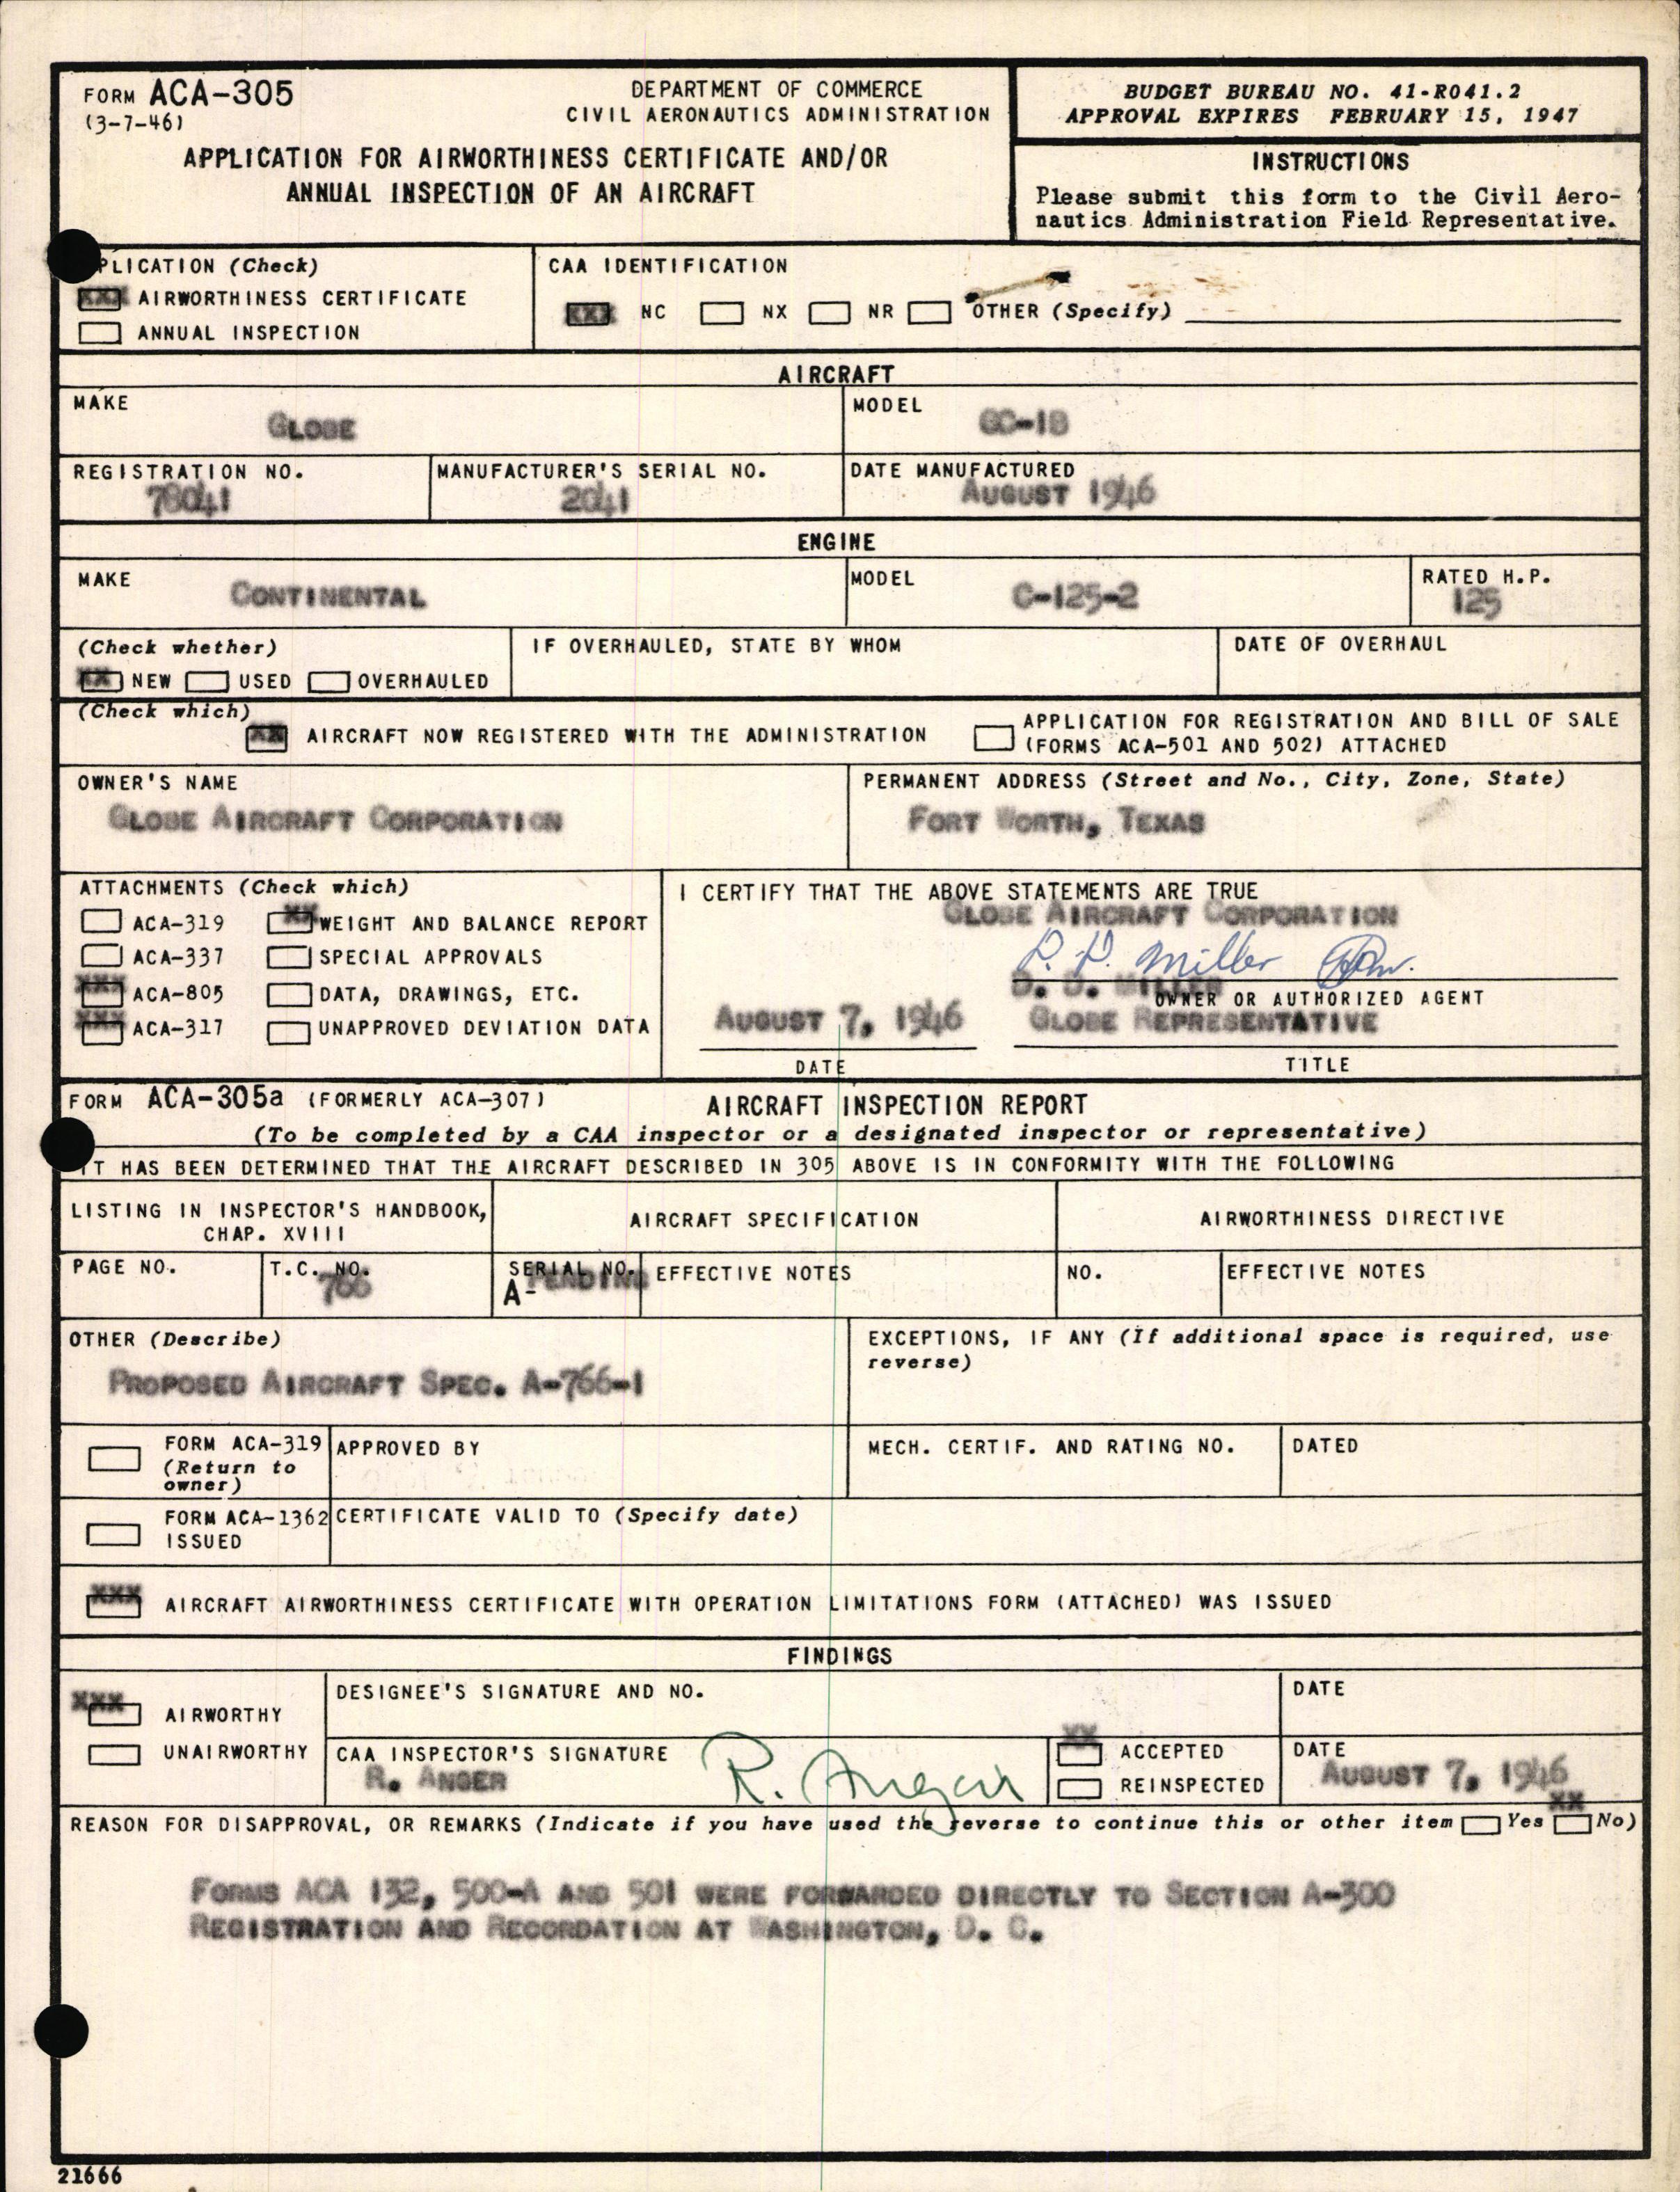 FORM ACA-305
(3-7-46)
DEPARTMENT OF COMMERCE
CIVIL AERONAUTICS ADMINISTRATION
APPLICATION FOR AIRWORTHINESS CERTIFICATE AND/OR
ANNUAL INSPECTION OF AN AIRCRAFT
BUDGET BUREAU NO. 41-R041.2
APPROVAL EXPIRES FEBRUARY 15, 1947
INSTRUCTIONS
Please submit this form to the Civil Aero-
nautics Administration Field Representative.
PLICATION (Check)
XXX AIRWORTHINESS CERTIFICATE
ANNUAL INSPECTION
CAA IDENTIFICATION
XXX NC NX NR OTHER (Specify)
AIRCRAFT
MAKE
GLOBE
MODEL
GC-1B
REGISTRATION NO.
78041
MANUFACTURER'S SERIAL NO.
2041
DATE MANUFACTURED
AUGUST 1946
ENGINE
MAKE
CONTINENTAL
MODEL
C-125-2
RATED H.P.
125
(Check whether)
XX NEW USED OVERHAULED
IF OVERHAULED, STATE BY WHOM
DATE OF OVERHAUL
(Check which)
XX AIRCRAFT NOW REGISTERED WITH THE ADMINISTRATION
APPLICATION FOR REGISTRATION AND BILL OF SALE
(FORMS ACA-501 AND 502) ATTACHED
OWNER'S NAME
GLOBE AIRCRAFT CORPORATION
PERMANENT ADDRESS (Street and No., City, Zone, State)
FORT WORTH, TEXAS
ATTACHMENTS (Check which)
ACA-319 XX WEIGHT AND BALANCE REPORT
ACA-337 SPECIAL APPROVALS
XXX ACA-805 DATA, DRAWINGS, ETC.
XXX ACA-317 UNAPPROVED DEVIATION DATA
I CERTIFY THAT THE ABOVE STATEMENTS ARE TRUE
GLOBE AIRCRAFT CORPORATION
Miller
MILLER
OWNER OR AUTHORIZED AGENT
AUGUST 7, 1946
GLOBE REPRESENTATIVE
DATE
TITLE
FORM ACA-305a (FORMERLY ACA-307)
AIRCRAFT INSPECTION REPORT
(To be completed by a CAA inspector or a designated inspector or representative)
IT HAS BEEN DETERMINED THAT THE AIRCRAFT DESCRIBED IN 305 ABOVE IS IN CONFORMITY WITH THE FOLLOWING
LISTING IN INSPECTOR'S HANDBOOK,
CHAP. XVIII
AIRCRAFT SPECIFICATION
AIRWORTHINESS DIRECTIVE
PAGE NO.
T.C. NO.
766
SERIAL NO.
A-PENDING
EFFECTIVE NOTES
NO.
EFFECTIVE NOTES
OTHER (Describe)
PROPOSED AIRCRAFT SPEC. A-766-1
EXCEPTIONS, IF ANY (If additional space is required, use
reverse)
FORM ACA-319
(Return to
owner)
APPROVED BY
MECH. CERTIF. AND RATING NO.
DATED
FORM ACA-1362
ISSUED
CERTIFICATE VALID TO (Specify date)
XXX AIRCRAFT AIRWORTHINESS CERTIFICATE WITH OPERATION LIMITATIONS FORM (ATTACHED) WAS ISSUED
FINDINGS
XXX AIRWORTHY
UNAIRWORTHY
DESIGNEE'S SIGNATURE AND NO.
DATE
CAA INSPECTOR'S SIGNATURE
R. ANGER
R. Anger
XX ACCEPTED
REINSPECTED
DATE
AUGUST 7, 1946
REASON FOR DISAPPROVAL, OR REMARKS (Indicate if you have used the reverse to continue this or other item Yes XX No)
FORMS ACA 132, 500-A AND 501 WERE FORWARDED DIRECTLY TO SECTION A-300
REGISTRATION AND RECORDATION AT WASHINGTON, D. C.
21666